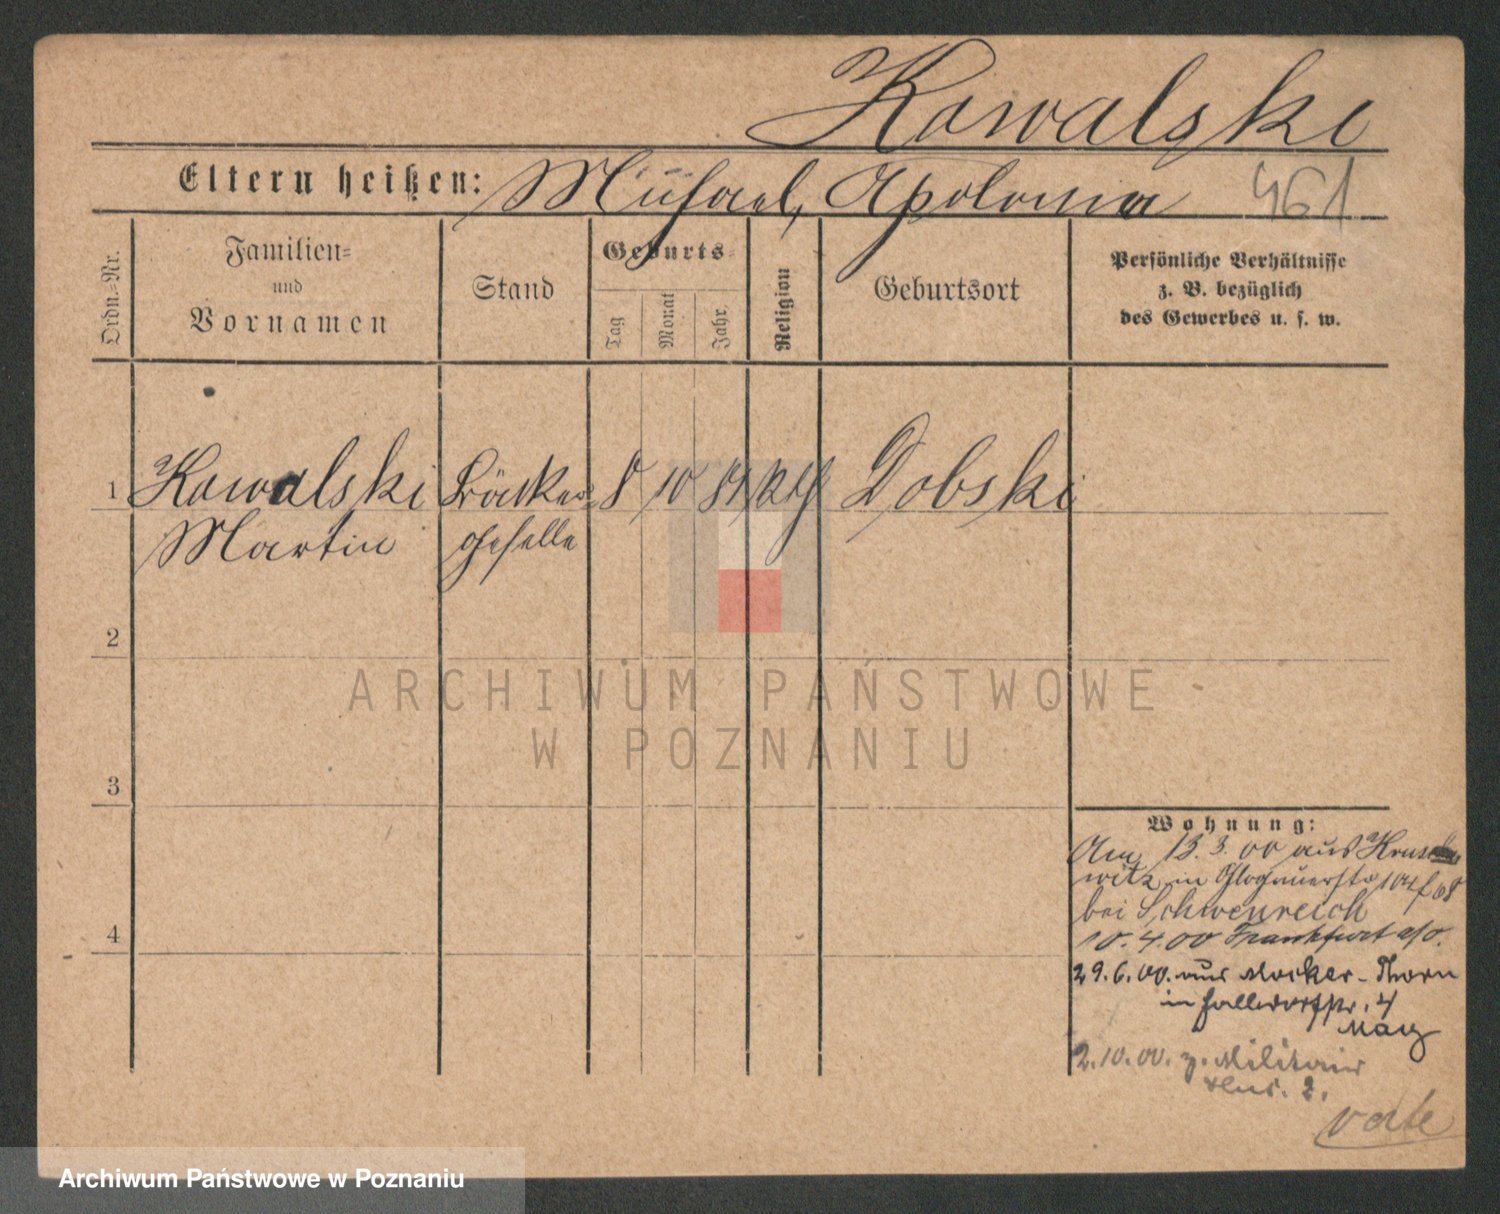 Kowalski
Eltern heißen: Michael, Apolonia 461
Ordn.-Nr.
Familien-
und
Vornamen
Stand
Geburts-
Tag
Monat
Jahr.
Religion
Geburtsort
Persönliche Verhältnisse
z. B. bezüglich
des Gewerbes u. s. w.
1 Kowalski Bäcker- 8 10 kth Dobski
Martin geselle
2
3
4
Wohnung:
Am 13.3.00 aus Krusch
witz in Glogauerstr 104
bei Schwenreich
10.4.00 Frankfurt a/O.
29.6.00. aus Mocker-Thorn
in 4
2.10.00. z. Militair
ARCHIWUM PAŃSTWOWE
W POZNANIU
Archiwum Państwowe w Poznaniu